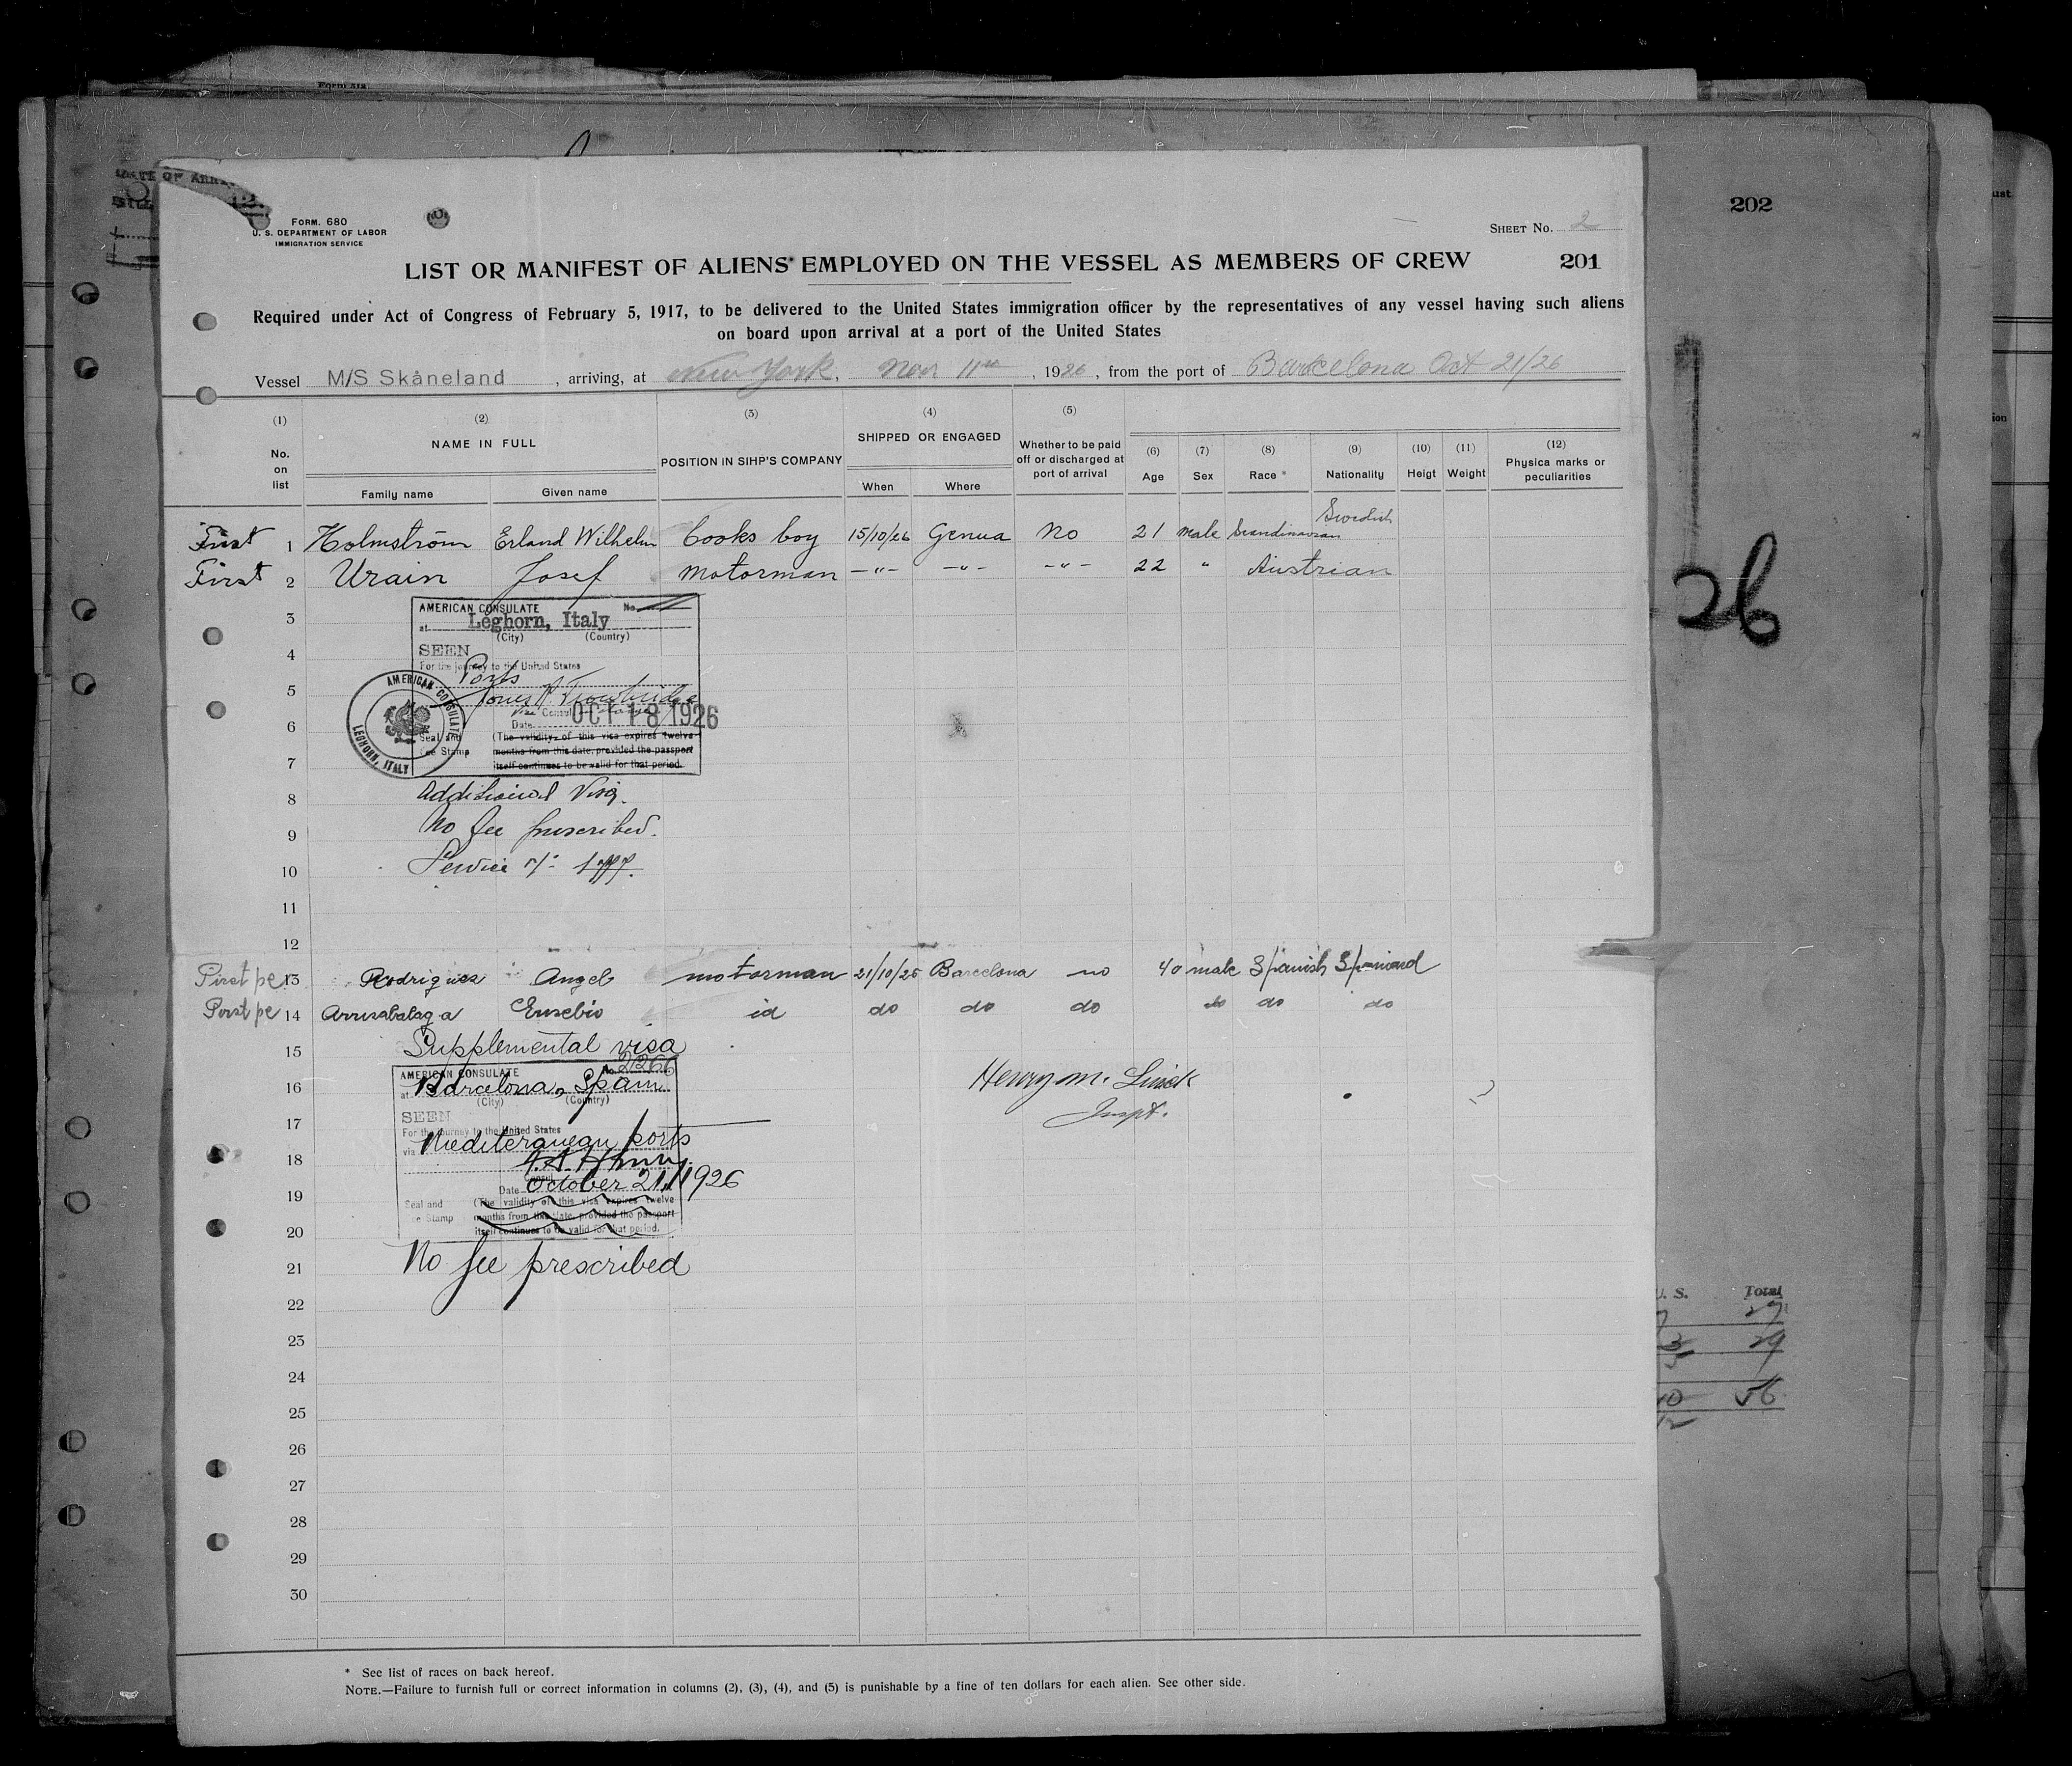 Form 512
FORM. 680
U. S. DEPARTMENT OF LABOR
IMMIGRATION SERVICE
SHEET No. 2
202
LIST OR MANIFEST OF ALIENS* EMPLOYED ON THE VESSEL AS MEMBERS OF CREW 201
Required under Act of Congress of February 5, 1917, to be delivered to the United States immigration officer by the representatives of any vessel having such aliens
on board upon arrival at a port of the United States
Vessel M/S Skåneland, arriving, at New York, Nov 11th, 1926, from the port of Barcelona Oct 21/26
(1) (2) (3) (4) (5) (6) (7) (8) (9) (10) (11) (12)
No. on list
NAME IN FULL
Family name Given name
POSITION IN SIHP'S COMPANY
SHIPPED OR ENGAGED
When Where
Whether to be paid off or discharged at port of arrival
Age Sex Race * Nationality Heigt Weight Physica marks or peculiarities
First 1 Holmström Erland Wilhelm Cooks boy 15/10/26 Genua No 21 male Scandinavian Swedish
First 2 Urain Josef Motorman -"- -"- -"- 22 " Austrian
3
AMERICAN CONSULATE No.
at Leghorn, Italy
(City) (Country)
4
SEEN
For the journey to the United States
Ports
5
6
Vice Consul
Date OCT 18 1926
AMERICAN CONSULATE LEGHORN, ITALY
Seal and Fee Stamp
(The validity of this visa expires twelve
months from this date, provided the passport
itself continues to be valid for that period.
7
8 Additional Visa.
9 No fee prescribed.
10 Service
11
12
First 13 Rodrigues Angel motorman 21/10/26 Barcelona no 40 male Spanish Spaniard
14 Arrusabalaga Eusebio id do do do do do do
15 Supplemental visa
AMERICAN CONSULATE No. 2266
16 at Barcelona, Spain
(City) (Country)
Henry M.
Inspt.
SEEN
17
For the journey to the United States
via Mediteranean ports
18
Consul
Date October 21, 1926
19
Seal and Fee Stamp
(The validity of this visa expires twelve
months from this date, provided the passport
itself continues to be valid for that period.
20
21 No fee prescribed
22
23
24
25
26
27
28
29
30
* See list of races on back hereof.
NOTE.—Failure to furnish full or correct information in columns (2), (3), (4), and (5) is punishable by a fine of ten dollars for each alien. See other side.
26
U. S. Total
27
29
56